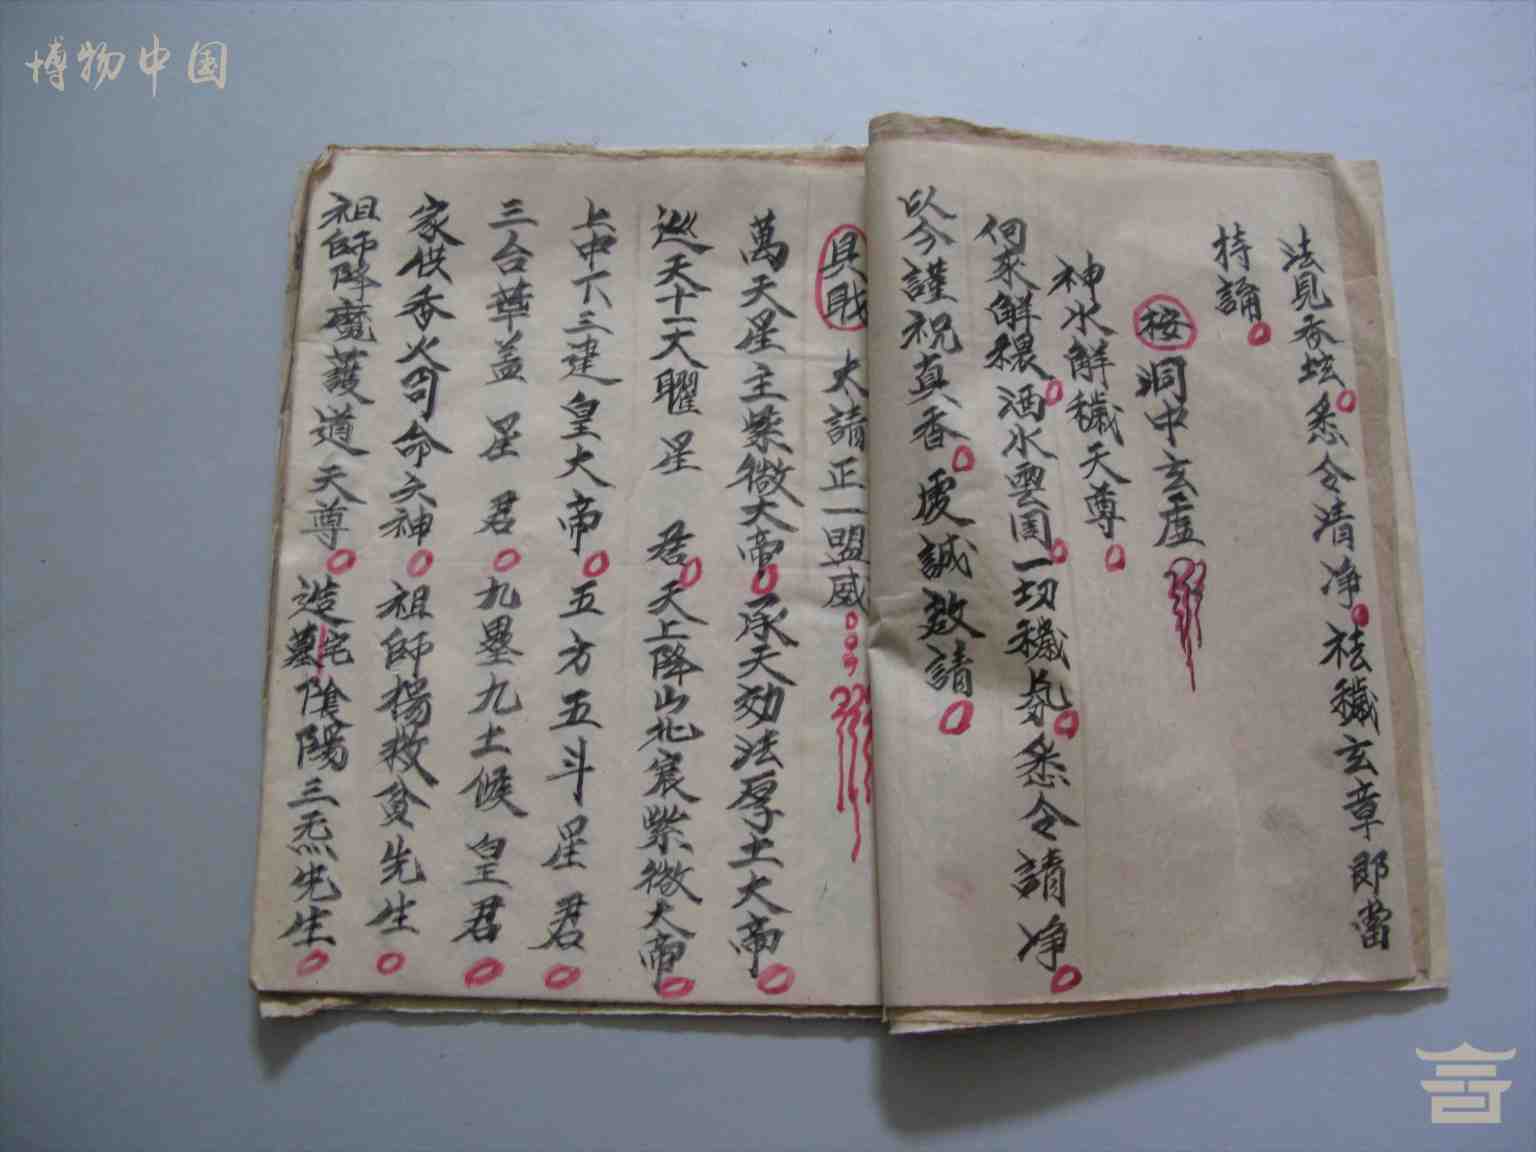 博物中国
法見吞垓悉令清净祛穢玄章郎當
持誦
按洞中玄虚
神水解穢天尊
何来解穢洒水雲園一切穢氛悉令請净
以今謹祝真香虔誠啟請
具戝大請正一盟威
萬天星主紫微大帝承天効法厚土大帝
巡天十一大曜星君天上降山北宸紫微大帝
上中下三建皇大帝五方五斗星君
三台華盖星君九壘九土候皇君
家供香火司命六神祖師楊救貧先生
祖師降魔護道天尊造宅墓陰陽三炁先生